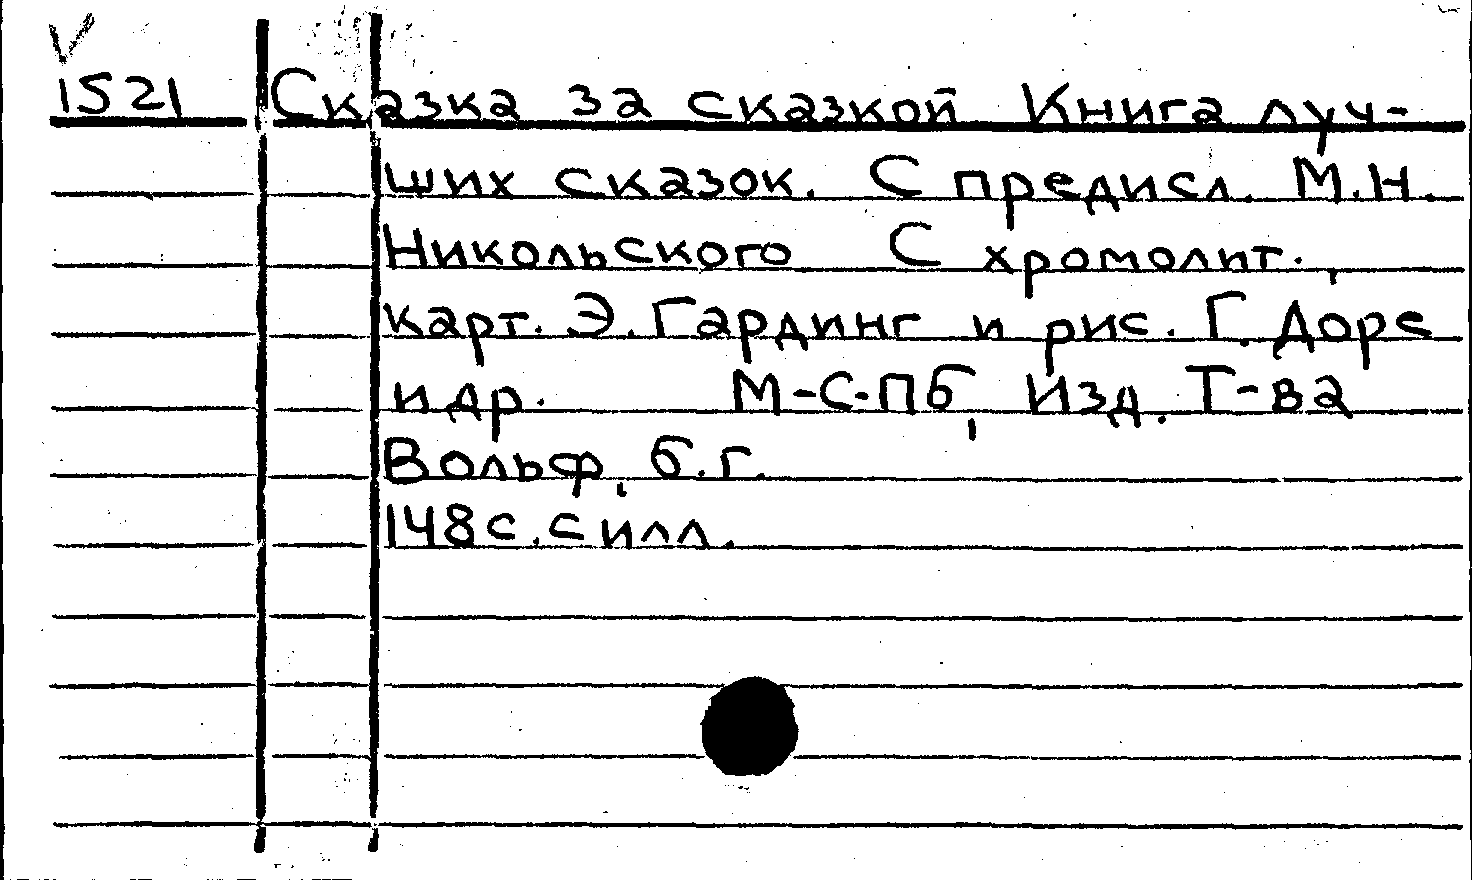 1521 Сказка за сказкой Книга луч-
ших сказок. С предисл. М.Н.
Никольского С хромолит.,
карт. Э. Гардинг и рис. Г. Доре
и др. М-С-Пб, Изд. Т-ва
Вольф, б.г.
148 с. с илл.